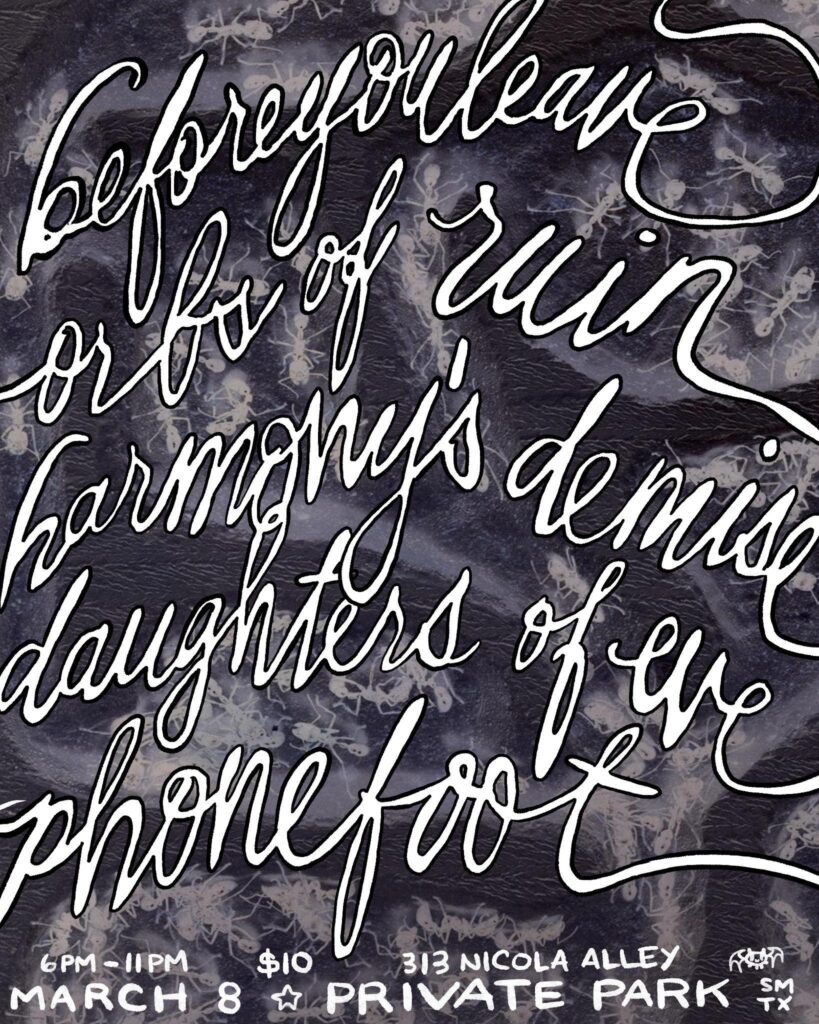 beforeyouleave
orbs of ruin
harmony's demise
daughters of eve
phonefoot
6PM-11PM $10 313 NICOLA ALLEY
MARCH 8 ☆ PRIVATE PARK SM TX